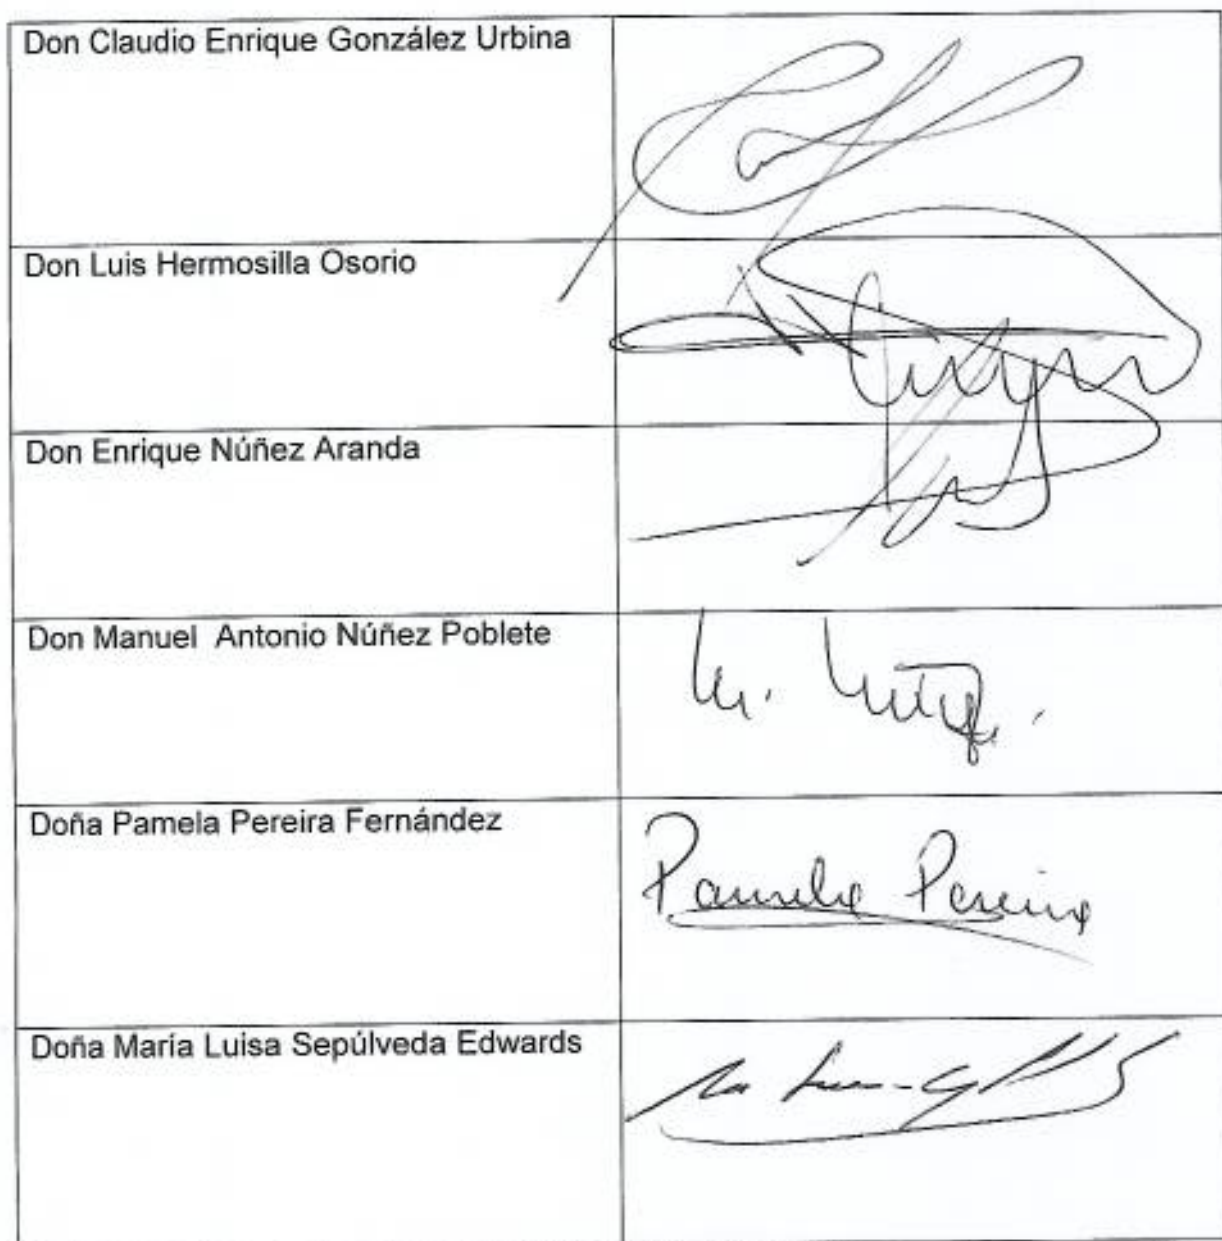 Don Claudio Enrique González Urbina
Don Luis Hermosilla Osorio
Don Enrique Núñez Aranda
Don Manuel  Antonio Núñez Poblete
Doña Pamela Pereira Fernández
Pamela Pereira
Doña María Luisa Sepúlveda Edwards